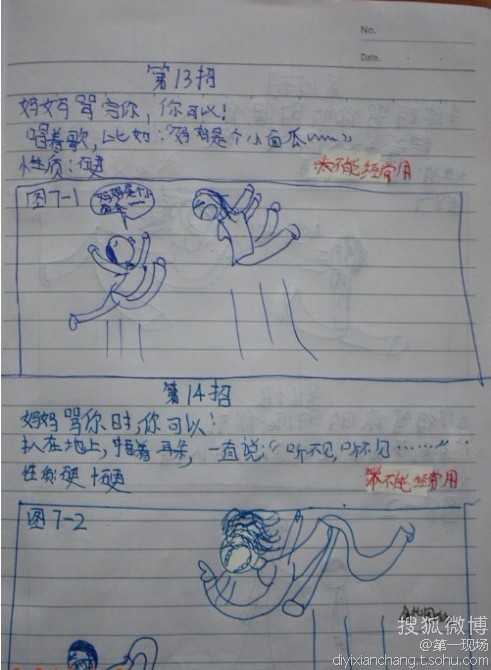 No.
Date.
第13招
妈妈骂完你，你可以！
唱着歌，比如：妈妈是个小面瓜~~~》
性质：硬
不能经常用
图7-1
妈妈是个小面瓜
第14招
妈妈骂你时，你可以！
趴在地上，捂着耳朵，一直说：“听不见，听不见……”
性质硬+硬
不能经常用
图7-2
搜狐微博
@第一现场
diyixianchang.t.sohu.com